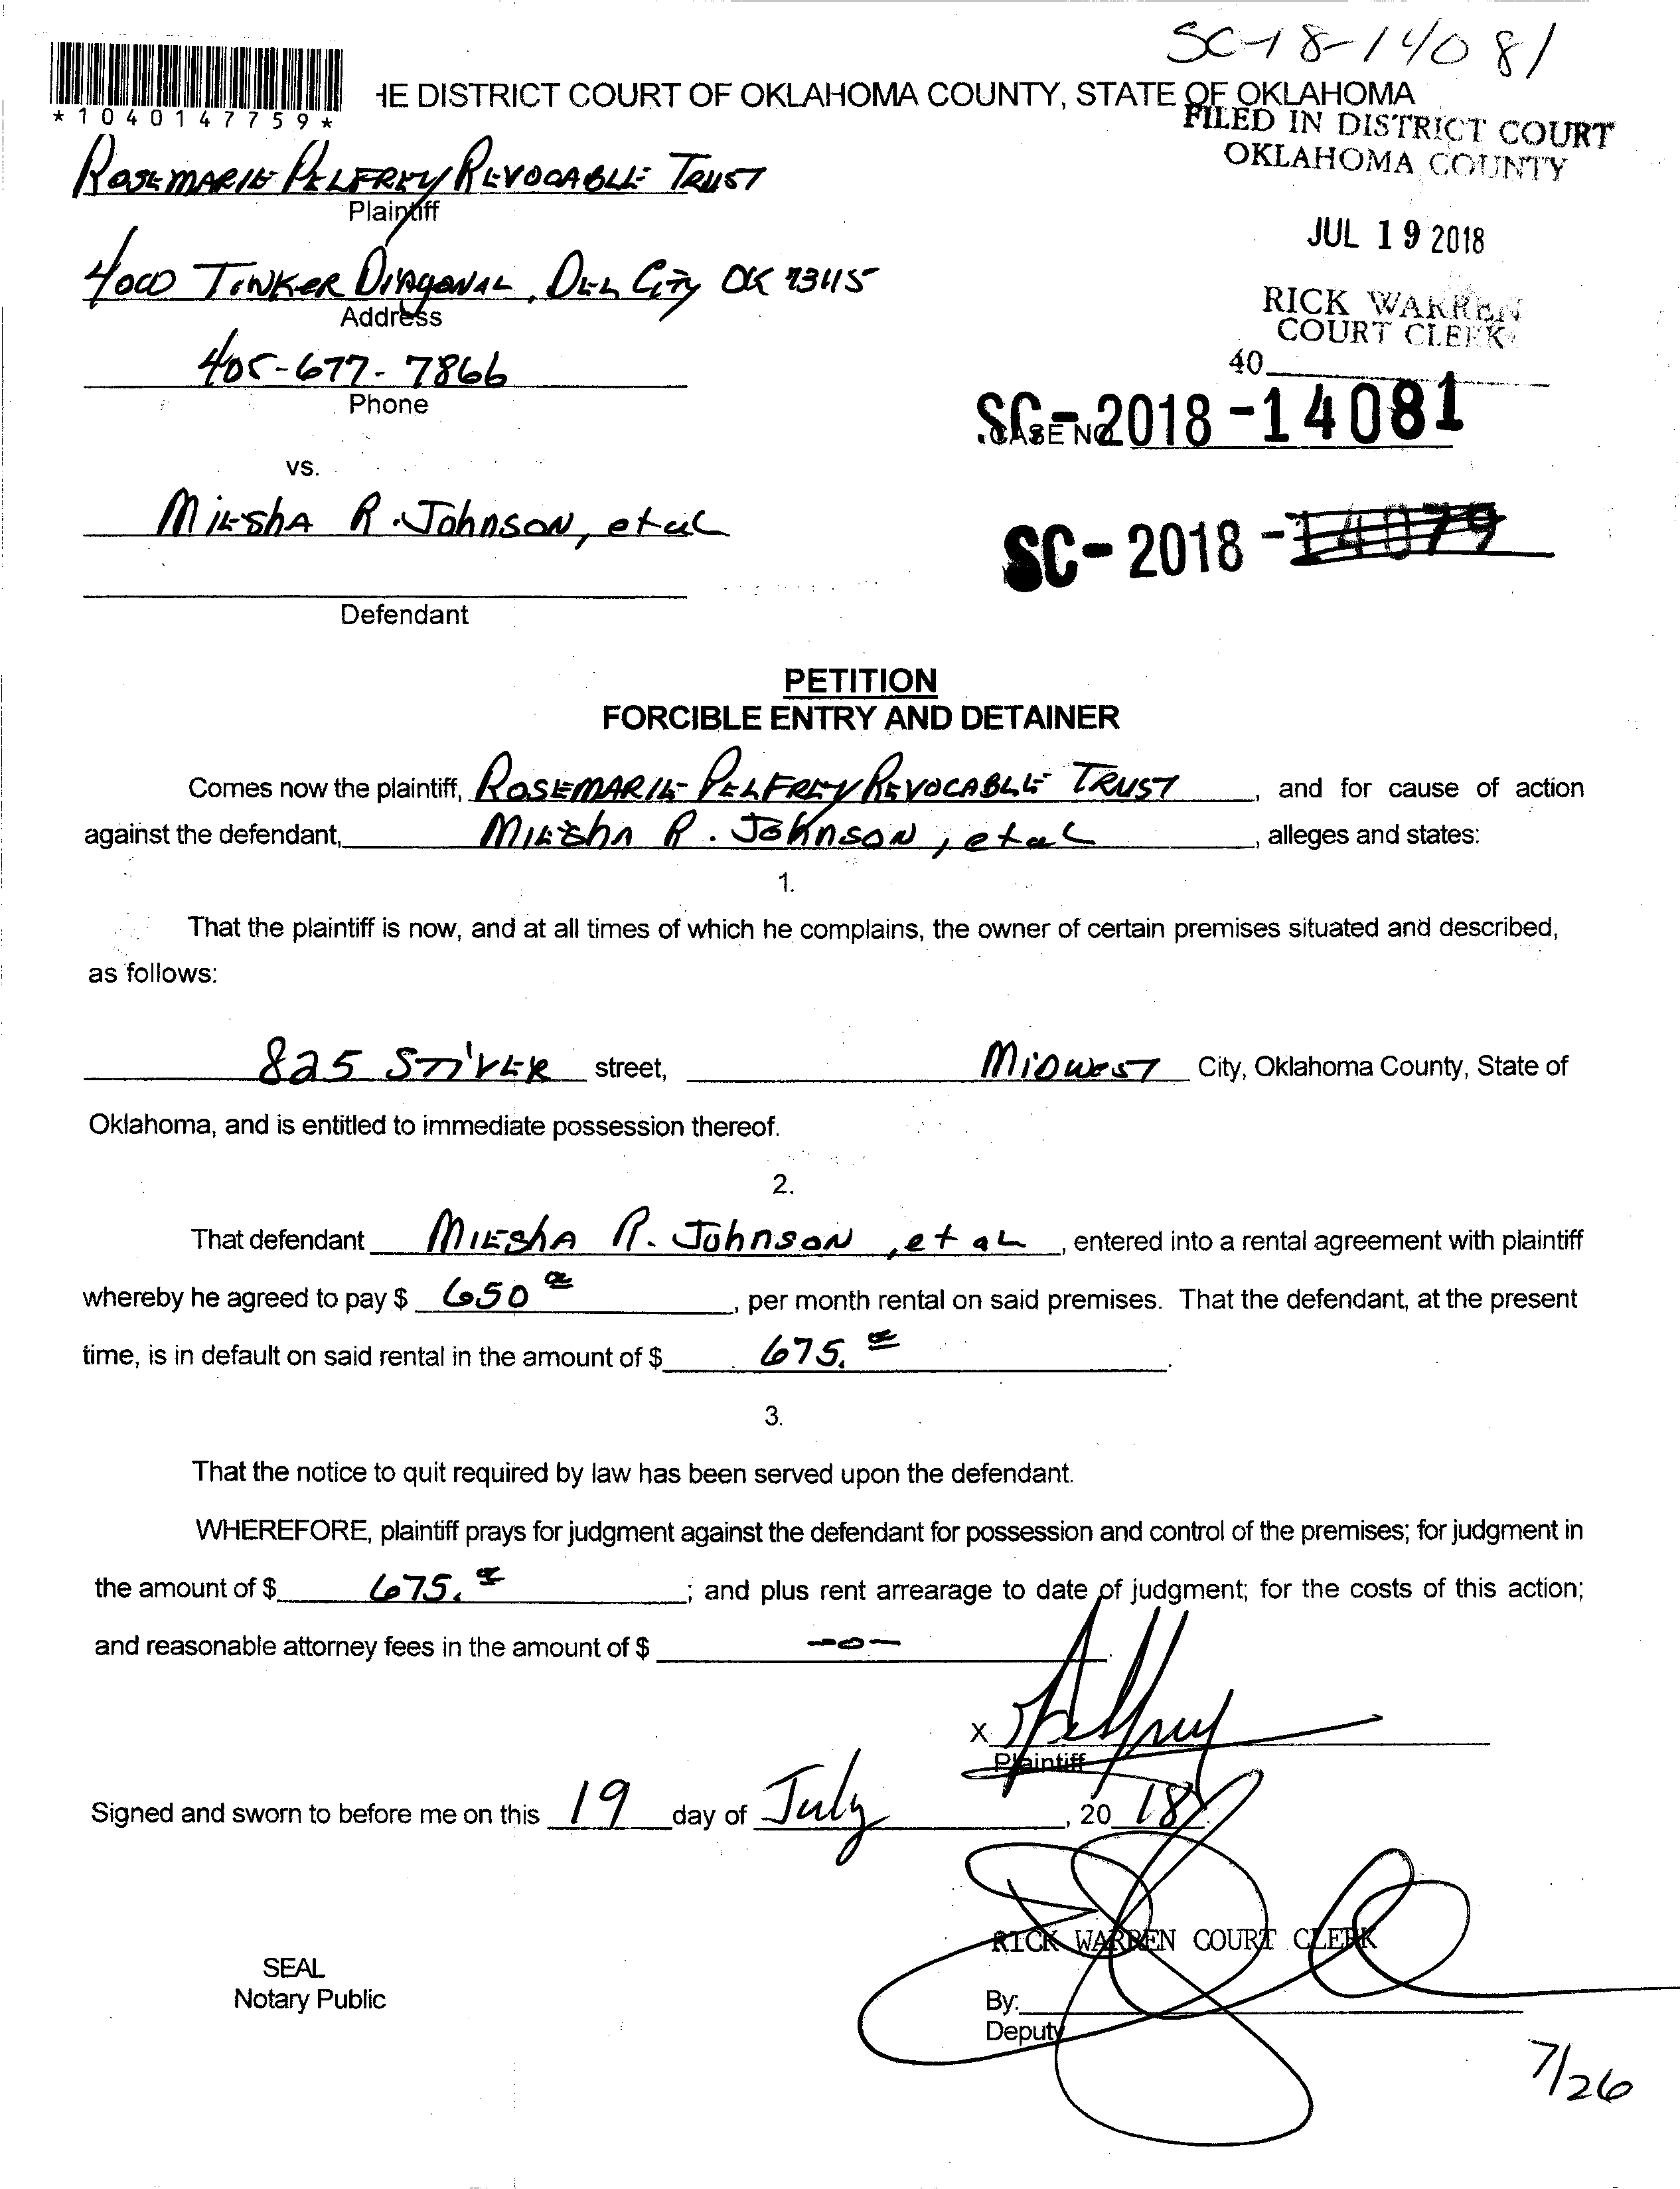 SC-18-14081
*1040147759*
HE DISTRICT COURT OF OKLAHOMA COUNTY, STATE OF OKLAHOMA
FILED IN DISTRICT COURT
OKLAHOMA COUNTY
ROSEMARIE PELFREY REVOCABLE TRUST
Plaintiff
JUL 19 2018
4000 TINKER DIAGONAL, DEL CITY OK 73115
Address
RICK WARREN
COURT CLERK
405-677-7866
40
Phone
SC-2018-14081
CASE NO.
vs.
MIESHA R. JOHNSON, et al
SC-2018-14079
Defendant
PETITION
FORCIBLE ENTRY AND DETAINER
Comes now the plaintiff, ROSEMARIE PELFREY REVOCABLE TRUST, and for cause of action
against the defendant, MIESHA R. JOHNSON, et al, alleges and states:
1.
That the plaintiff is now, and at all times of which he complains, the owner of certain premises situated and described,
as follows:
825 STIVER street, MIDWEST City, Oklahoma County, State of
Oklahoma, and is entitled to immediate possession thereof.
2.
That defendant MIESHA R. JOHNSON, et al, entered into a rental agreement with plaintiff
whereby he agreed to pay $ 650 00, per month rental on said premises. That the defendant, at the present
time, is in default on said rental in the amount of $ 675. 00.
3.
That the notice to quit required by law has been served upon the defendant.
WHEREFORE, plaintiff prays for judgment against the defendant for possession and control of the premises; for judgment in
the amount of $ 675. 00; and plus rent arrearage to date of judgment; for the costs of this action;
and reasonable attorney fees in the amount of $ -0-.
X Pelfrey
Plaintiff
Signed and sworn to before me on this 19 day of July, 20 18.
RICK WARREN COURT CLERK
SEAL
Notary Public
By:
Deputy
7/26